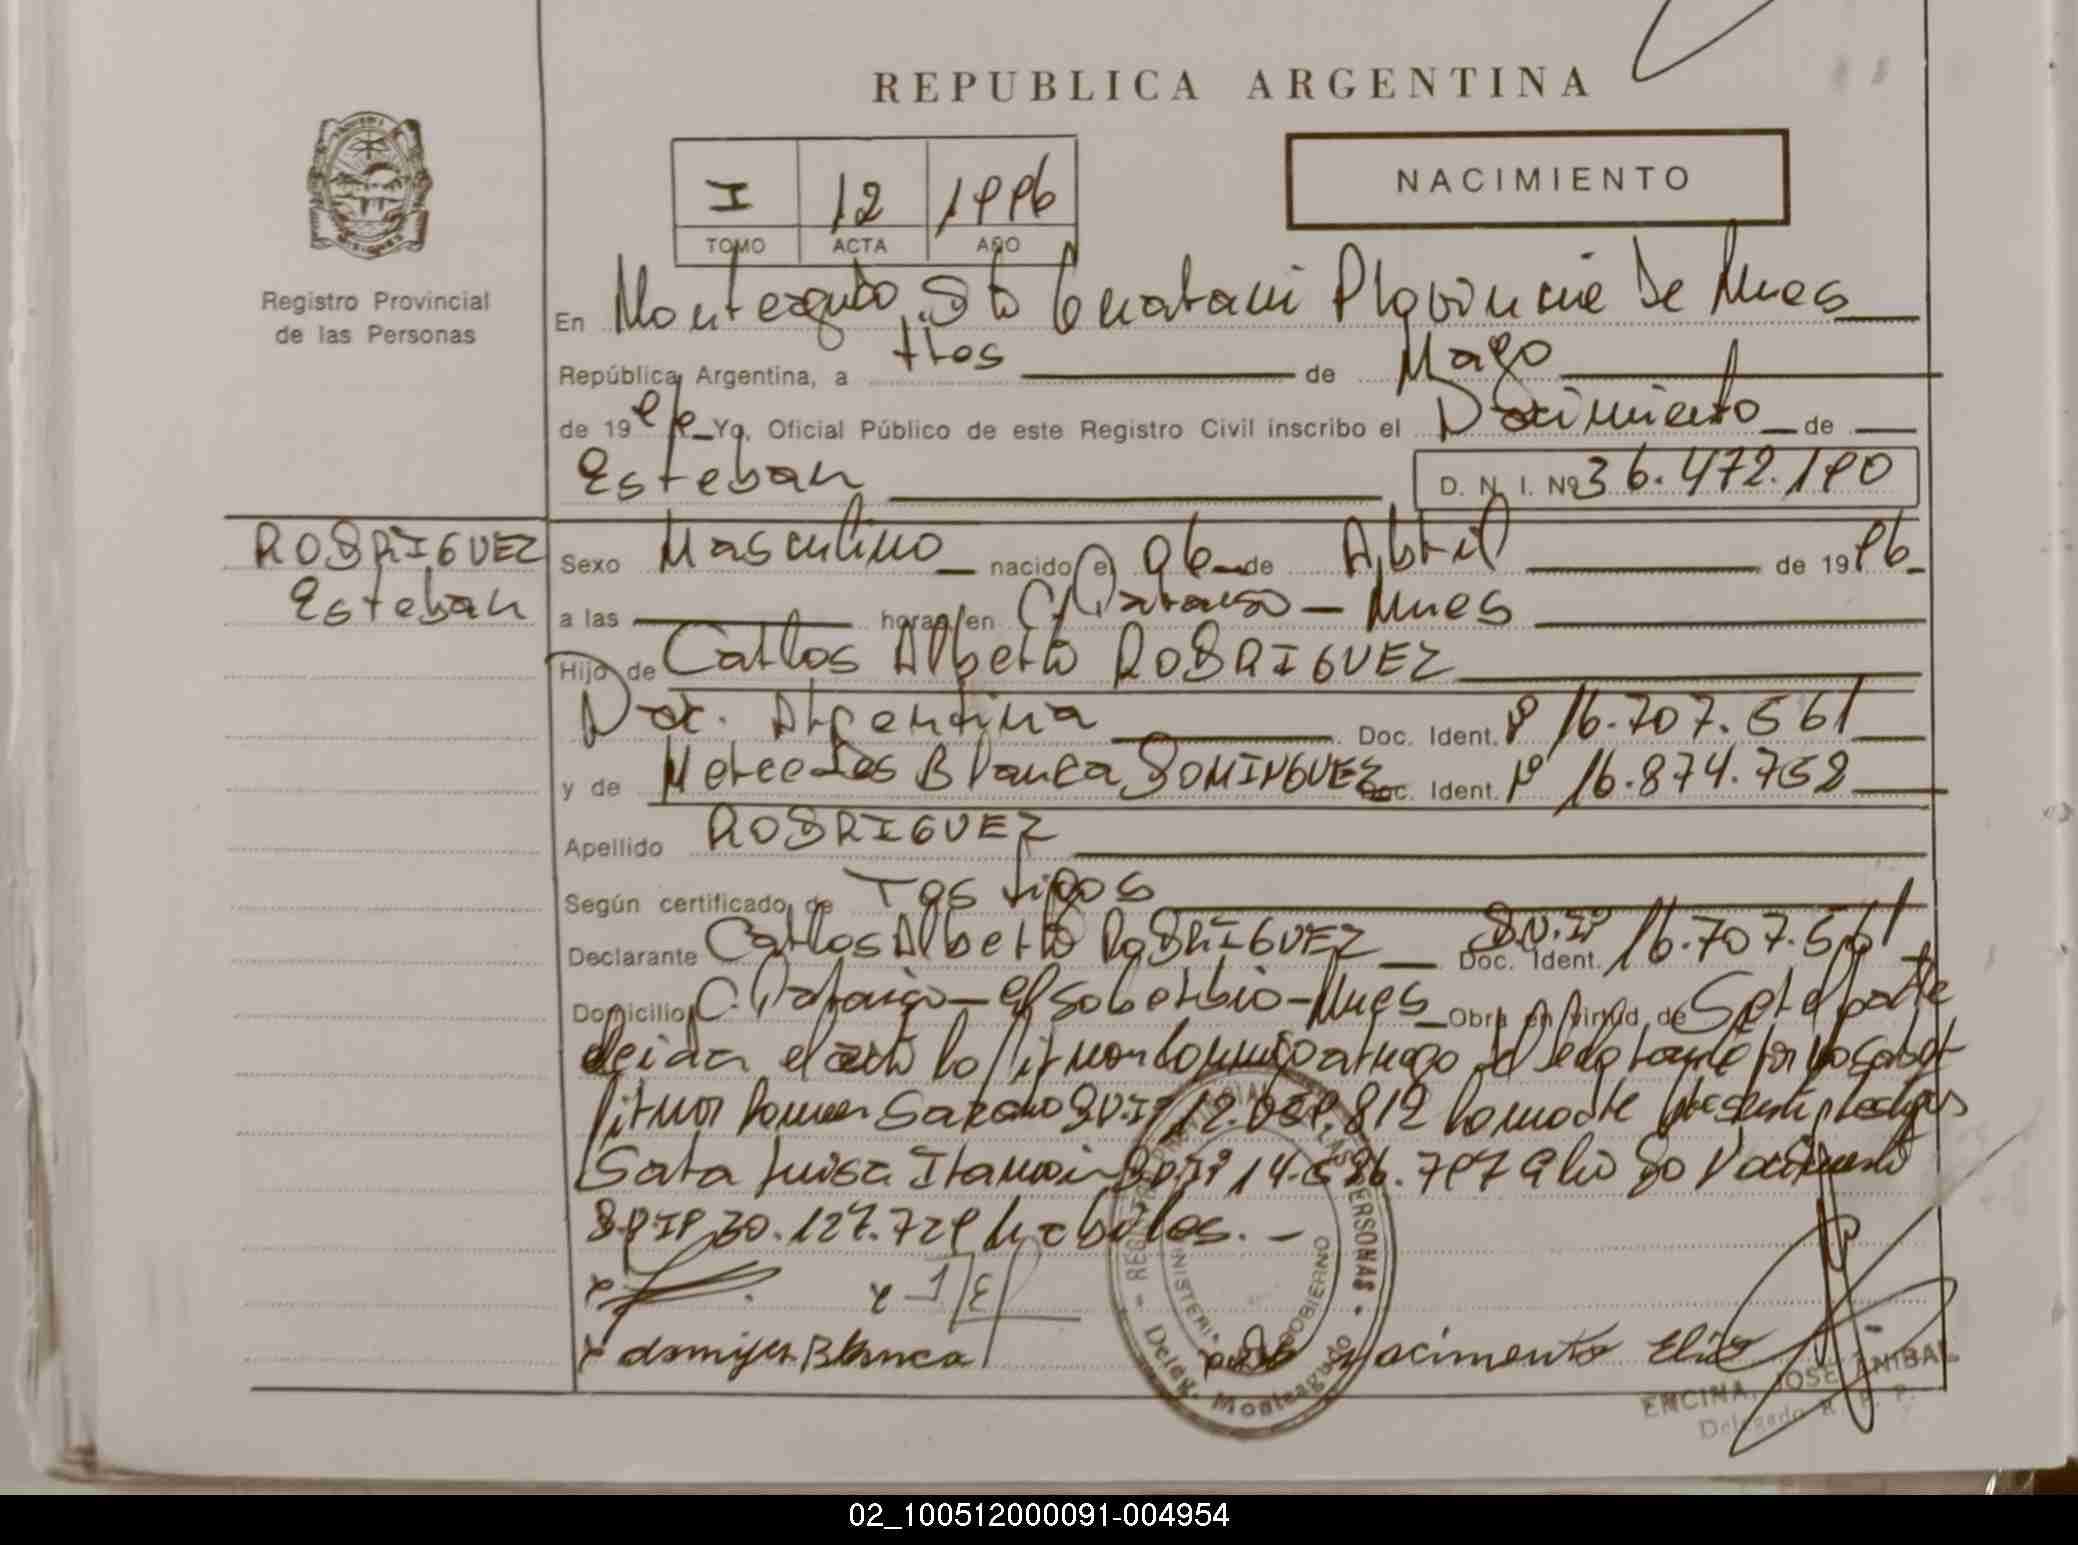 REPUBLICA ARGENTINA
NACIMIENTO
I 12 1996
TOMO ACTA AÑO
Registro Provincial
de las Personas
En Monteagudo Dto Guarani Provincia De Mnes
República Argentina, a tres de Mayo
de 19 Yo, Oficial Público de este Registro Civil inscribo el Nacimiento de
Esteban D. N. I. Nº 36.472.190
RODRIGUEZ
Esteban
Sexo Masculino nacido el 06 de Abril de 1996
a las horas en C. Paraiso - Mnes
Hijo de Carlos Alberto RODRIGUEZ
Nac. Argentina Doc. Ident. Nº 16.707.561
y de Mercedes Blanca DOMINGUEZ Doc. Ident. Nº 16.874.758
Apellido RODRIGUEZ
Según certificado de Testigos
Declarante Carlos Alberto RODRIGUEZ Doc. Ident. D.N.Iº 16.707.561
Domicilio C. Paraiso - El Soberbio - Mnes Obra en virtud de Ser el padre
leida el acta la firman conmigo a ruego del declarante por no saber
firmar
Sara Luisa
x
x
x Blanca
nacimento Elio
REGISTRO PROVINCIAL DE LAS PERSONAS
MINISTERIO GOBIERNO
Deleg. Monteagudo
ENCINA, JOSE ANIBAL
Delegado R. P. P.
02_100512000091-004954